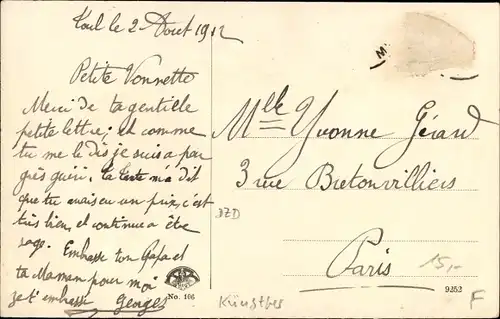 Toul le 2 Aout 1912
Petite Vonnette
Merci de ta gentille
petite lettre; et comme
tu me le dis je suis a peu
près guéri. ta tante m'a dit
que tu avais eu un prix, c'est
très bien, et continue a être
sage. Embrasse ton Papa et
ta Maman pour moi
je t'embrasse Georges
No. 106
M
Mlle Yvonne Gérard
3 rue Bretonvilliers
Paris
DZD
15,-
9252
Künstler
F